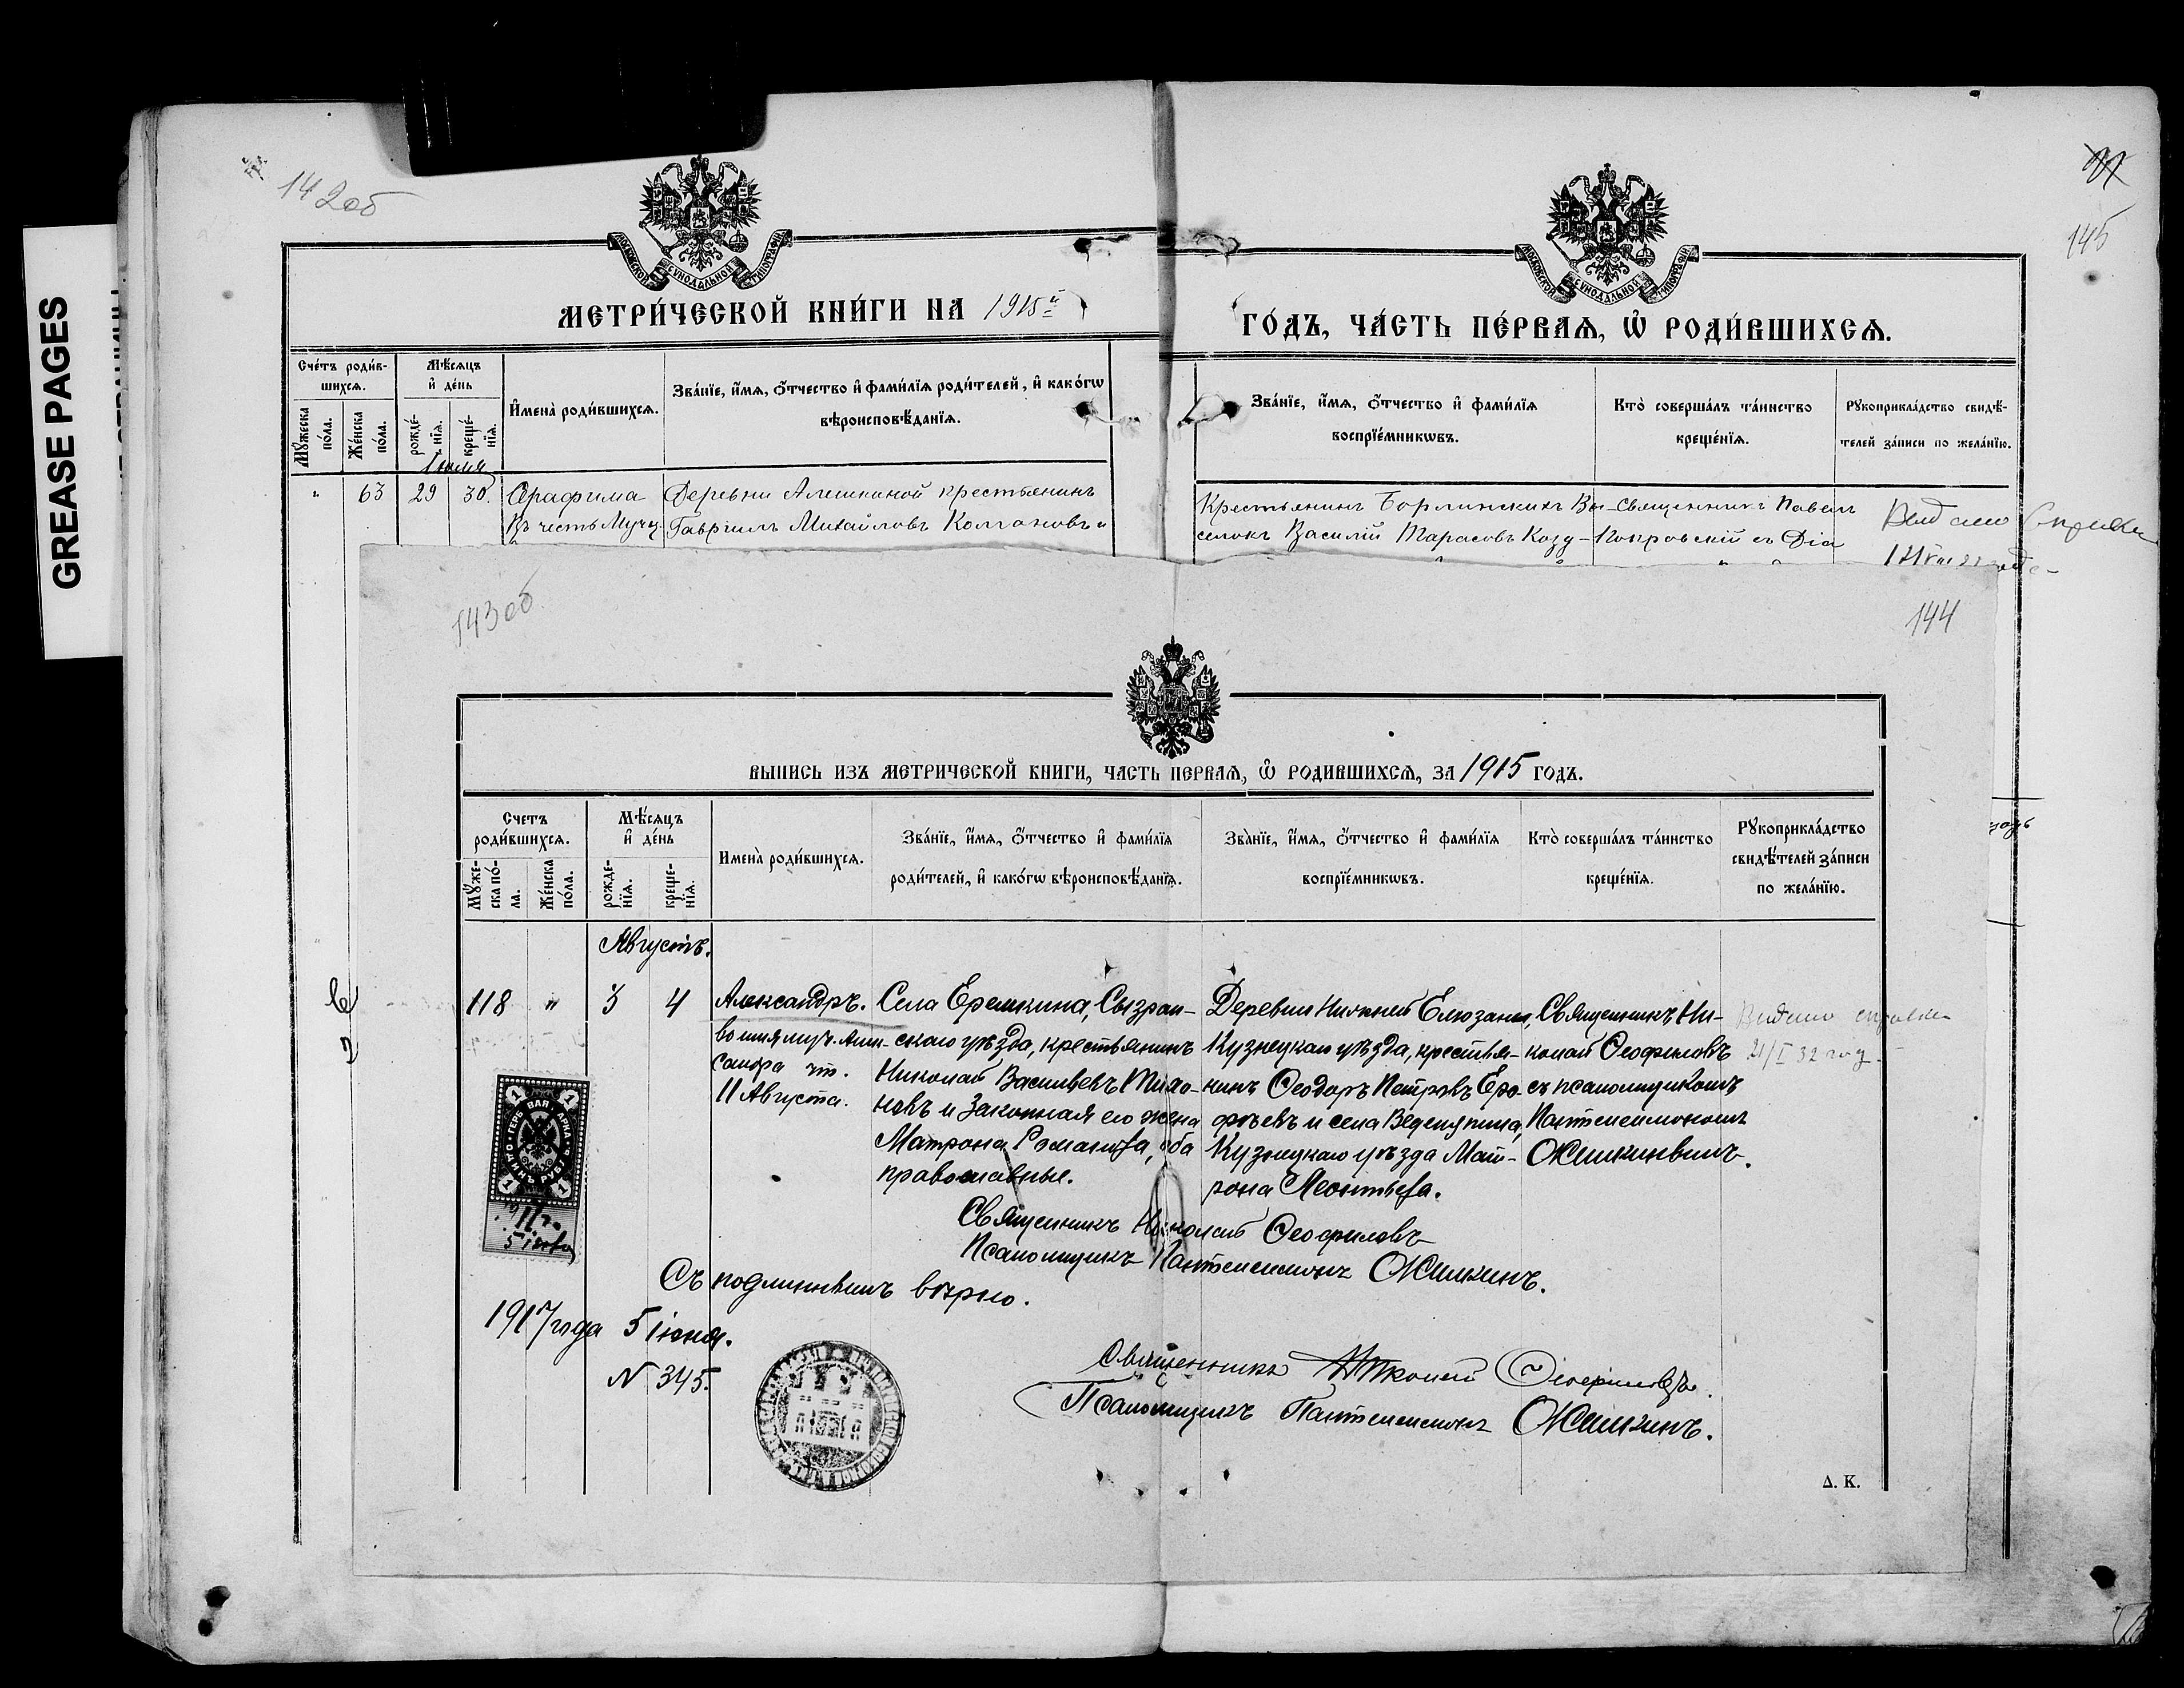 GREASE PAGES
142об
145
МОСКОВСКОЙ СѴНОДАЛЬНОЙ ТИПОГРАФІИ
МОСКОВСКОЙ СѴНОДАЛЬНОЙ ТИПОГРАФІИ
МЕТРИ́ЧЕСКОЙ КНИ́ГИ НА 1915й
ГО́ДЪ, ЧА́СТЬ ПЕ́РВАѦ, Ѡ҆ РОДИ́ВШИХСѦ.
Сче́тъ роди́в-
шихсѧ.
Мꙋ́жеска
по́ла.
Же́нска
по́ла.
Мѣ́сѧцъ
и҆ де́нь
рожде́-
нїѧ.
креще́-
нїѧ.
И҆мена̀ роди́вшихсѧ.
Зва́нїе, и҆́мѧ, ѻ҆́тчество и҆ фами́лїѧ роди́телей, и҆ како́гѡ
вѣроисповѣ́данїѧ.
Зва́нїе, и҆́мѧ, ѻ҆́тчество и҆ фами́лїѧ
воспрїе́мникѡвъ.
Кто̀ соверша́лъ та́инство
креще́нїѧ.
Рꙋкоприкла́дство свидѣ́-
телей за́писи по жела́нїю.
Іюля
" 63 29 30. Серафима Деревни Алешкиной крестьянинъ
Въ честь Муч. Гавріилъ Михайловъ и
Крестьянинъ Борлинскихъ Вы- Священникъ Павелъ
селокъ Василій Тарасовъ Козу- Покровскій съ Діа
143об
144
ВЫПИСЬ ИЗЪ МЕТРИЧЕСКОЙ КНИГИ, ЧАСТЬ ПЕРВАѦ, Ѡ҆ РОДИВШИХСѦ, ЗА 1915 ГОДЪ.
Счетъ
роди́вшихсѧ.
Мꙋ́же-
ска по́-
ла.
Же́нска
по́ла.
Мѣ́сѧцъ
и҆ де́нь
рожде-
нїѧ.
креще-
нїѧ.
Имена̀ роди́вшихсѧ.
Зва́нїе, и҆́мѧ, ѻ҆́тчество и҆ фами́лїѧ
роди́телей, и҆ како́гѡ вѣроисповѣ́данїѧ.
Зва̀нїе, и҆́мѧ, ѻ҆́тчество и҆ фами́лїѧ
воспрїе́мникѡвъ.
Кто̀ соверша́лъ та́инство
креще́нїѧ.
Рꙋкоприкла́дство
свидѣ́телей за́писи
по жела́нїю.
Августъ.
118 " 3 4
Александръ.
во имя муч. Алек-
сандра чт.
11 Августа.
Села Еремкина, Сызран-
скаго уѣзда, крестьянинъ
Николай Васильевъ Тихо-
новъ и законная его жена
Матрона Романова, оба
православные.
Деревни Нижней Елюзани,
Кузнецкаго уѣзда, крестья-
нинъ Ѳеодоръ Петровъ Еро-
фѣевъ и села Веденяпина,
Кузнецкаго уѣзда Мат-
рона Леонтьева.
Священникъ Ни-
колай Ѳеофиловъ
съ псаломщикомъ
Пантелеимономъ
Ожишкинымъ.
Выдано справка
21/I 32 год.
Священникъ Николай Ѳеофиловъ
Псаломщикъ Пантелеимонъ Ожишкинъ.
Съ подлиннымъ вѣрно.
1917 года 5 іюня.
N 345.
Священникъ Николай Ѳеофиловъ.
Псаломщикъ Пантелеимонъ Ожишкинъ.
Д. К.